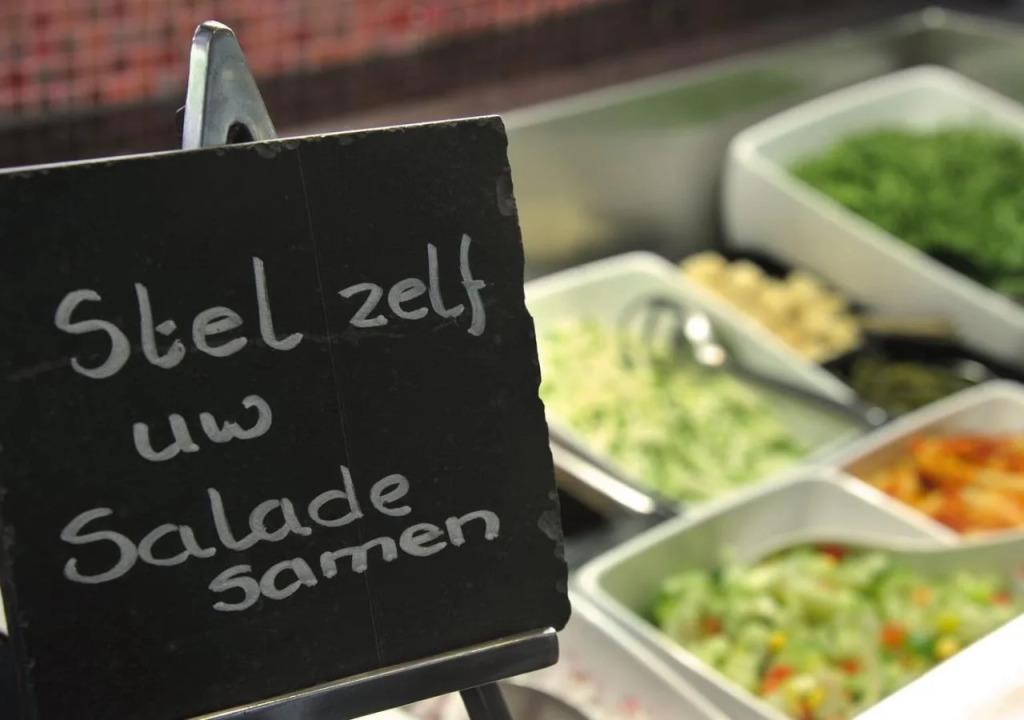 Stel zelf
uw
Salade
samen